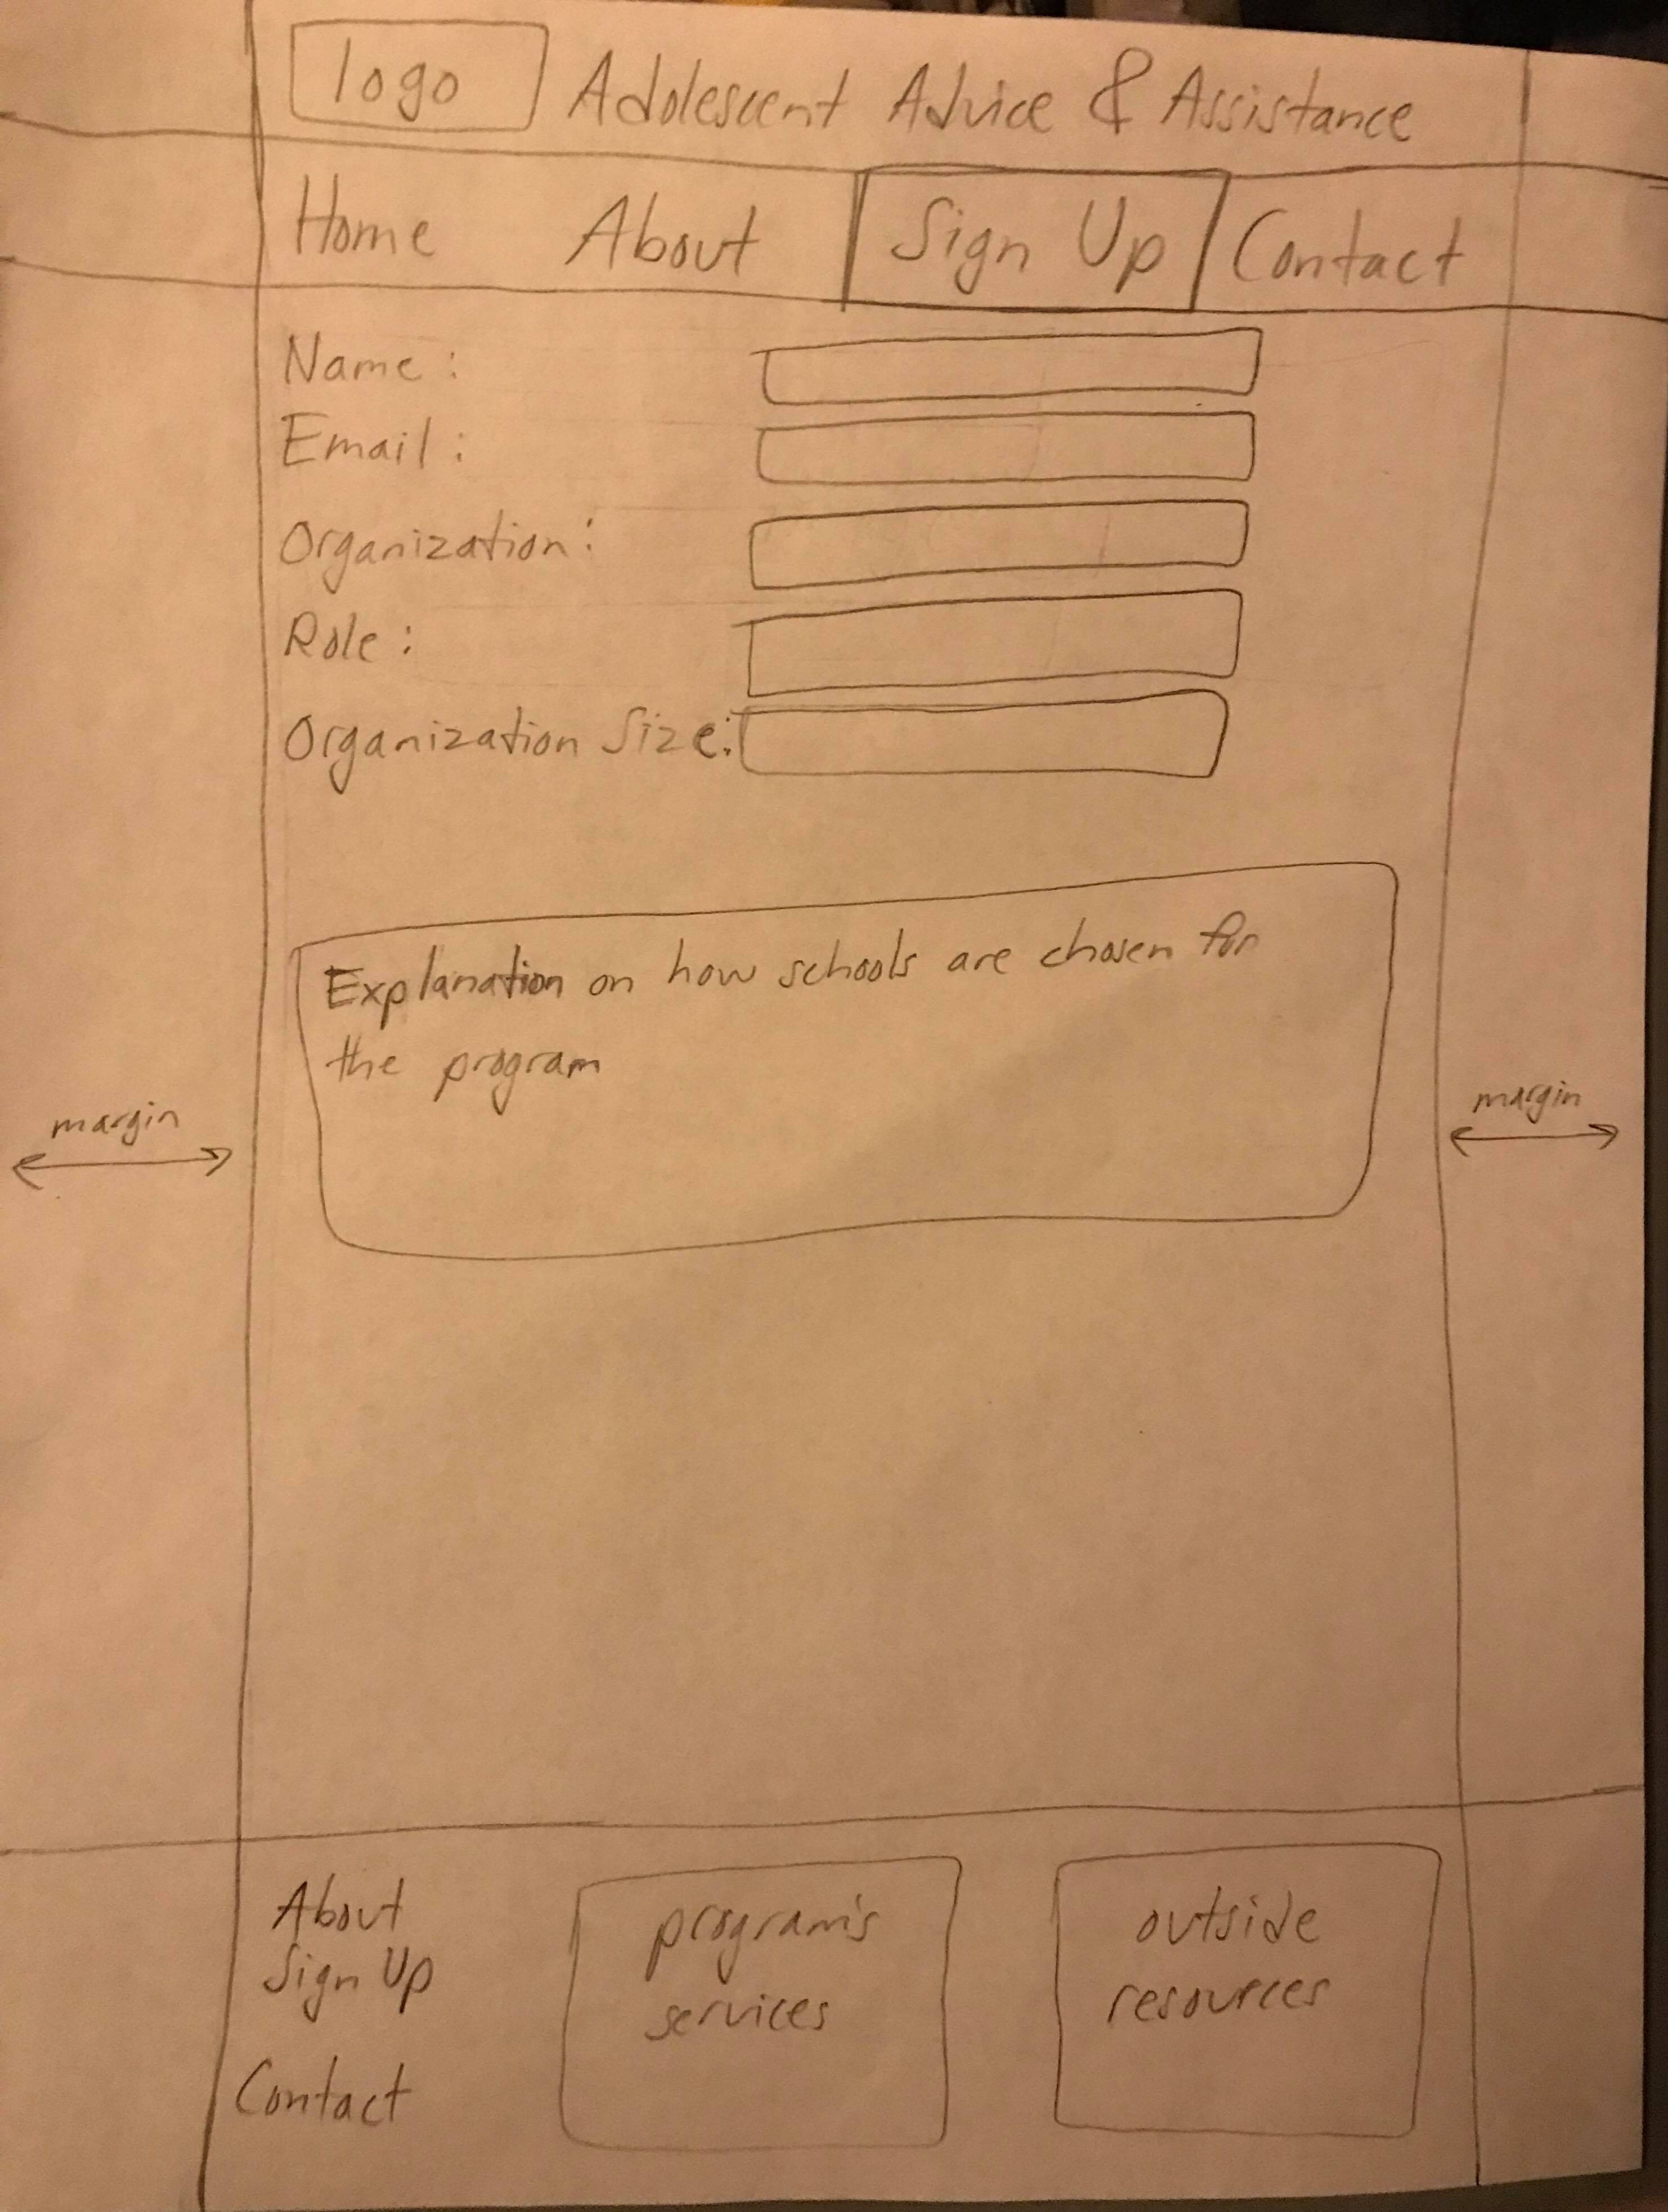 logo Adolescent Advice & Assistance
Home About Sign Up Contact
Name :
Email :
Organization :
Role :
Organization Size:
Explanation on how schools are chosen for
the program
margin
margin
About
Sign Up
Contact
program's
services
outside
resources